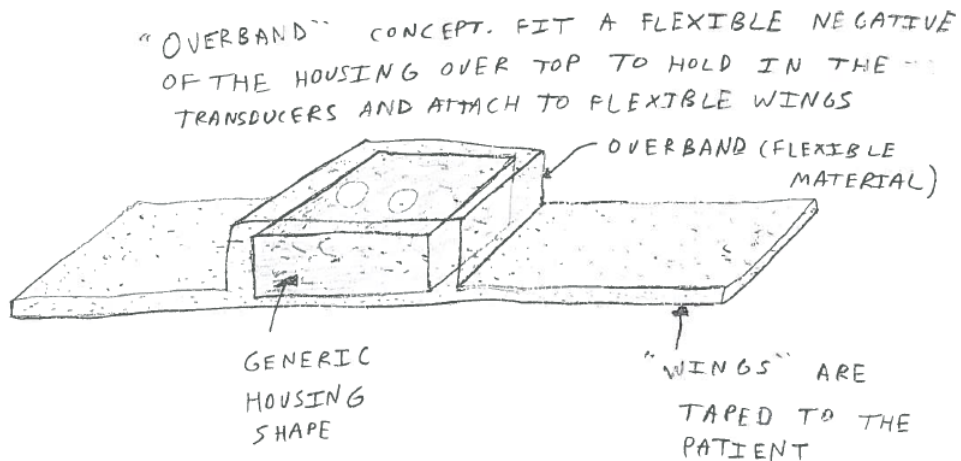 "OVERBAND" CONCEPT. FIT A FLEXIBLE NEGATIVE
OF THE HOUSING OVER TOP TO HOLD IN THE
TRANSDUCERS AND ATTACH TO FLEXIBLE WINGS
OVERBAND (FLEXIBLE
MATERIAL)
GENERIC
HOUSING
SHAPE
"WINGS" ARE
TAPED TO THE
PATIENT